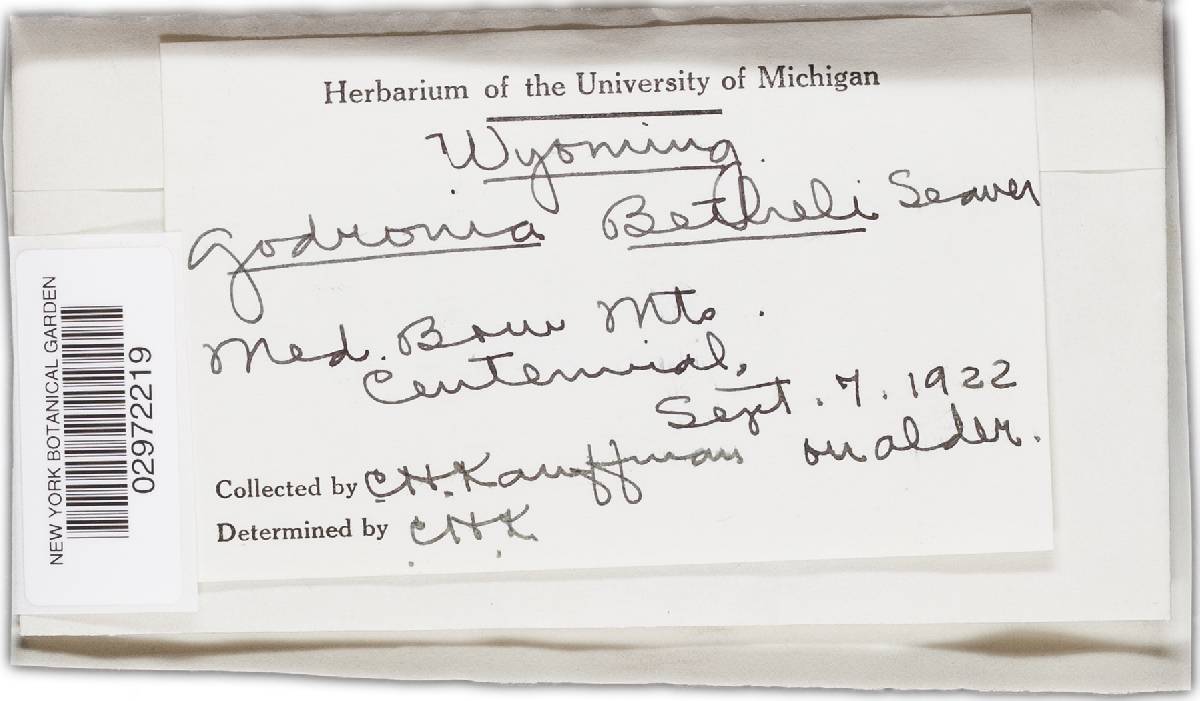 Herbarium of the University of Michigan
Wyoming.
Godronia Betheli Seaver
Med. Bow Mts.
Centennial,
Sept. 7. 1922
on alder.
Collected by C.H. Kauffman
Determined by C.H.K.
NEW YORK BOTANICAL GARDEN
02972219